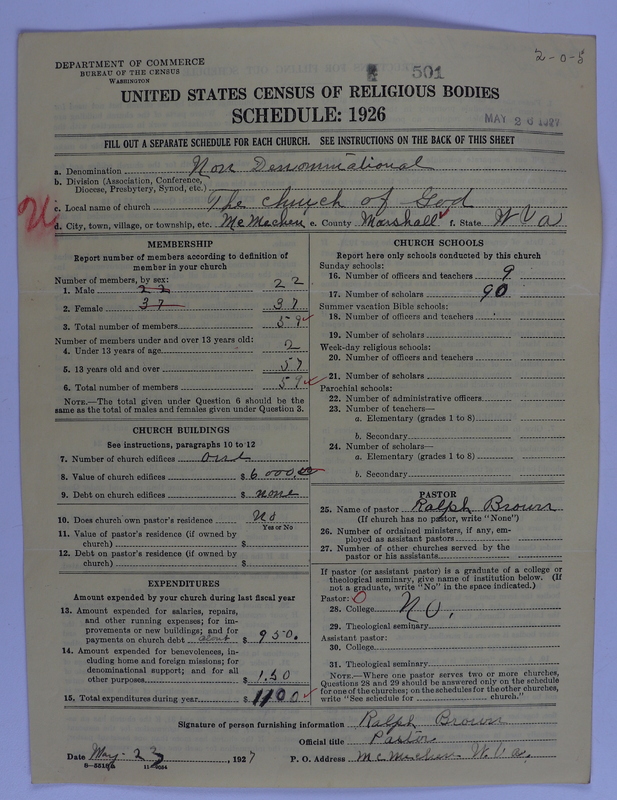 2-0-5
DEPARTMENT OF COMMERCE
BUREAU OF THE CENSUS
WASHINGTON
501
UNITED STATES CENSUS OF RELIGIOUS BODIES
SCHEDULE: 1926
MAY 26 1927
FILL OUT A SEPARATE SCHEDULE FOR EACH CHURCH. SEE INSTRUCTIONS ON THE BACK OF THIS SHEET
a. Denomination Non Denominational
b. Division (Association, Conference, Diocese, Presbytery, Synod, etc.)
c. Local name of church The Church of God
d. City, town, village, or township, etc. McMechen e. County Marshall f. State W Va
MEMBERSHIP
Report number of members according to definition of
member in your church
Number of members, by sex:
1. Male 22 22
2. Female 37 37
3. Total number of members 59
Number of members under and over 13 years old:
4. Under 13 years of age 2
5. 13 years old and over 57
6. Total number of members 59
NOTE.—The total given under Question 6 should be
same as the total of males and females given under Question 3.
CHURCH BUILDINGS
See instructions, paragraphs 10 to 12
7. Number of church edifices one
8. Value of church edifices $6000.00
9. Debt on church edifices $none
10. Does church own pastor's residence No
Yes or No
11. Value of pastor's residence (if owned by
church) $
12. Debt on pastor's residence (if owned by
church) $
EXPENDITURES
Amount expended by your church during last fiscal year
13. Amount expended for salaries, repairs,
and other running expenses; for im-
provements or new buildings; and for
payments on church debt about $950.
14. Amount expended for benevolences, in-
cluding home and foreign missions; for
denominational support; and for all
other purposes $150
15. Total expenditures during year $1100
CHURCH SCHOOLS
Report here only schools conducted by this church
Sunday schools:
16. Number of officers and teachers 9
17. Number of scholars 90
Summer vacation Bible schools:
18. Number of officers and teachers
19. Number of scholars
Week-day religious schools:
20. Number of officers and teachers
21. Number of scholars
Parochial schools:
22. Number of administrative officers
23. Number of teachers—
a. Elementary (grades 1 to 8)
b. Secondary
24. Number of scholars—
a. Elementary (grades 1 to 8)
b. Secondary
PASTOR
25. Name of pastor Ralph Brown
(If church has no pastor, write "None")
26. Number of ordained ministers, if any, em-
ployed as assistant pastors
27. Number of other churches served by the
pastor or his assistants
If pastor (or assistant pastor) is a graduate of a college or
theological seminary, give name of institution below. (If
not a graduate, write "No" in the space indicated.)
Pastor: 0
28. College No.
29. Theological seminary
Assistant pastor:
30. College
31. Theological seminary
NOTE.—Where one pastor serves two or more churches,
Questions 28 and 29 should be answered only on the schedule
for one of the churches; on the schedules for the other churches,
write "See schedule for church."
Signature of person furnishing information Ralph Brown
Official title Pastor
Date May. 23, 1927 P. O. Address McMechen W. Va.